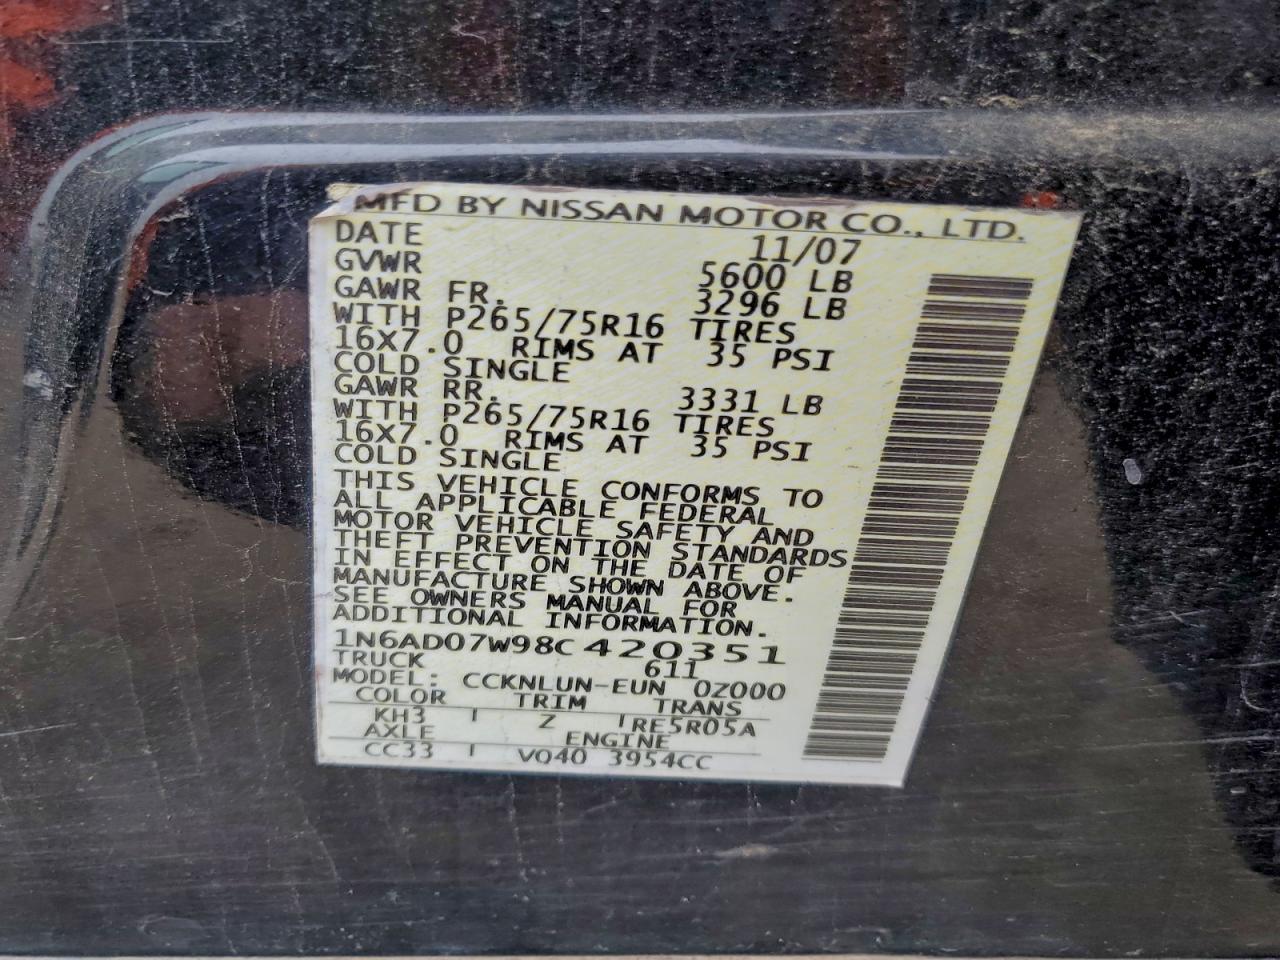 MFD BY NISSAN MOTOR CO., LTD.
DATE 11/07
GVWR 5600 LB
GAWR FR. 3296 LB
WITH P265/75R16 TIRES
16X7.0 RIMS AT 35 PSI
COLD SINGLE
GAWR RR. 3331 LB
WITH P265/75R16 TIRES
16X7.0 RIMS AT 35 PSI
COLD SINGLE
THIS VEHICLE CONFORMS TO
ALL APPLICABLE FEDERAL
MOTOR VEHICLE SAFETY AND
THEFT PREVENTION STANDARDS
IN EFFECT ON THE DATE OF
MANUFACTURE SHOWN ABOVE.
SEE OWNERS MANUAL FOR
ADDITIONAL INFORMATION.
1N6AD07W98C420351
TRUCK 611
MODEL: CCKNLUN-EUN 0Z000
COLOR TRIM TRANS
KH3 Z RE5R05A
AXLE ENGINE
CC33 VQ40 3954CC